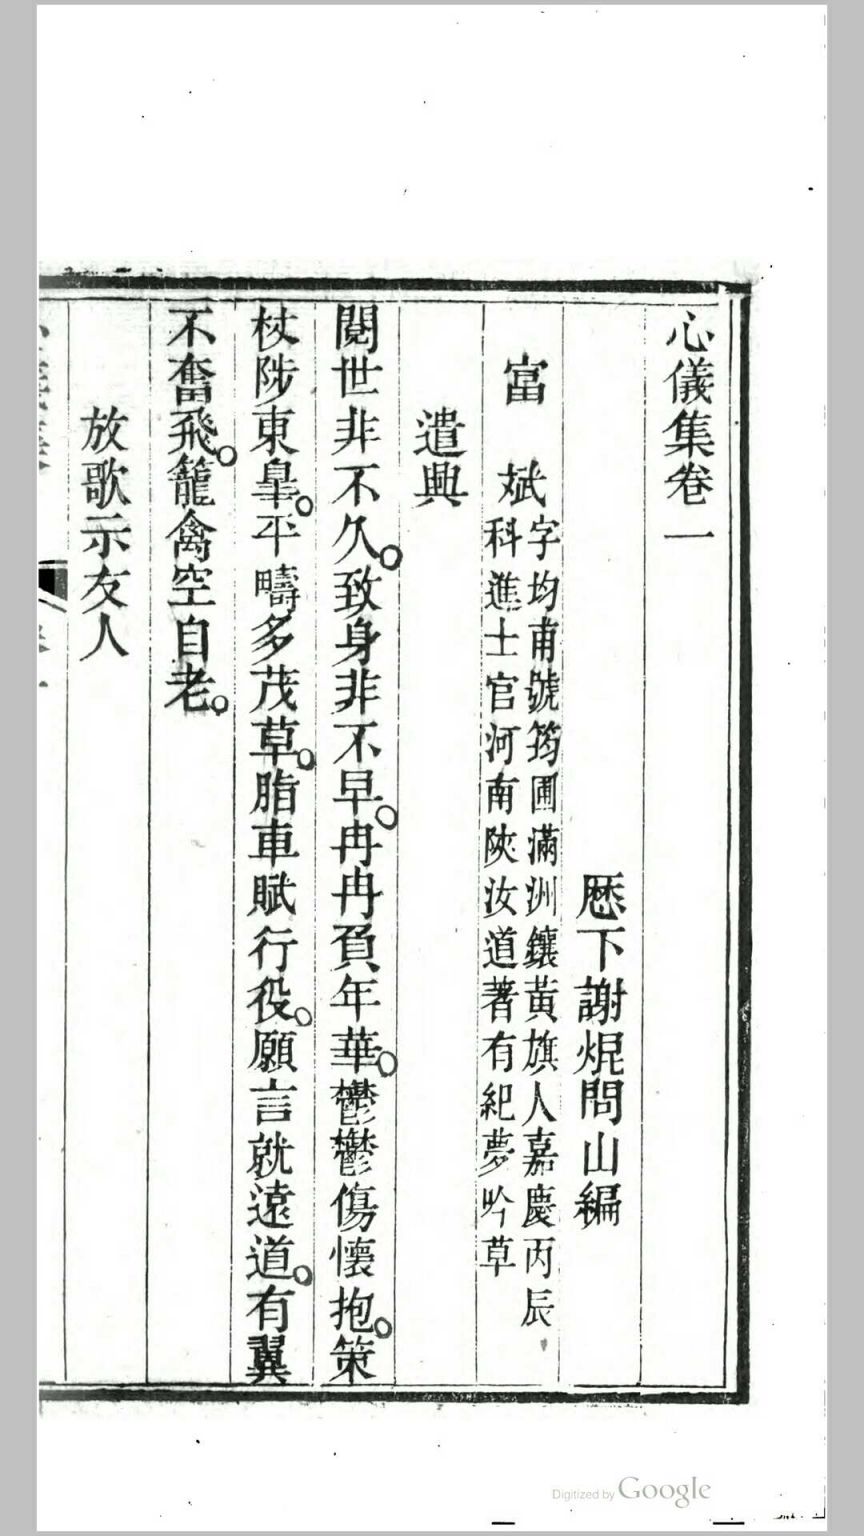 心儀集卷一
歷下謝焜問山編
富斌
字均甫號筠圃滿洲鑲黃旗人嘉慶丙辰
科進士官河南陝汝道著有紀夢吟草
遣興
閱世非不久。致身非不早。冉冉負年華。鬱鬱傷懷抱。策
杖陟東皐。平疇多茂草。脂車賦行役。願言就遠道。有翼
不奮飛。籠禽空自老。
放歌示友人
Digitized by Google